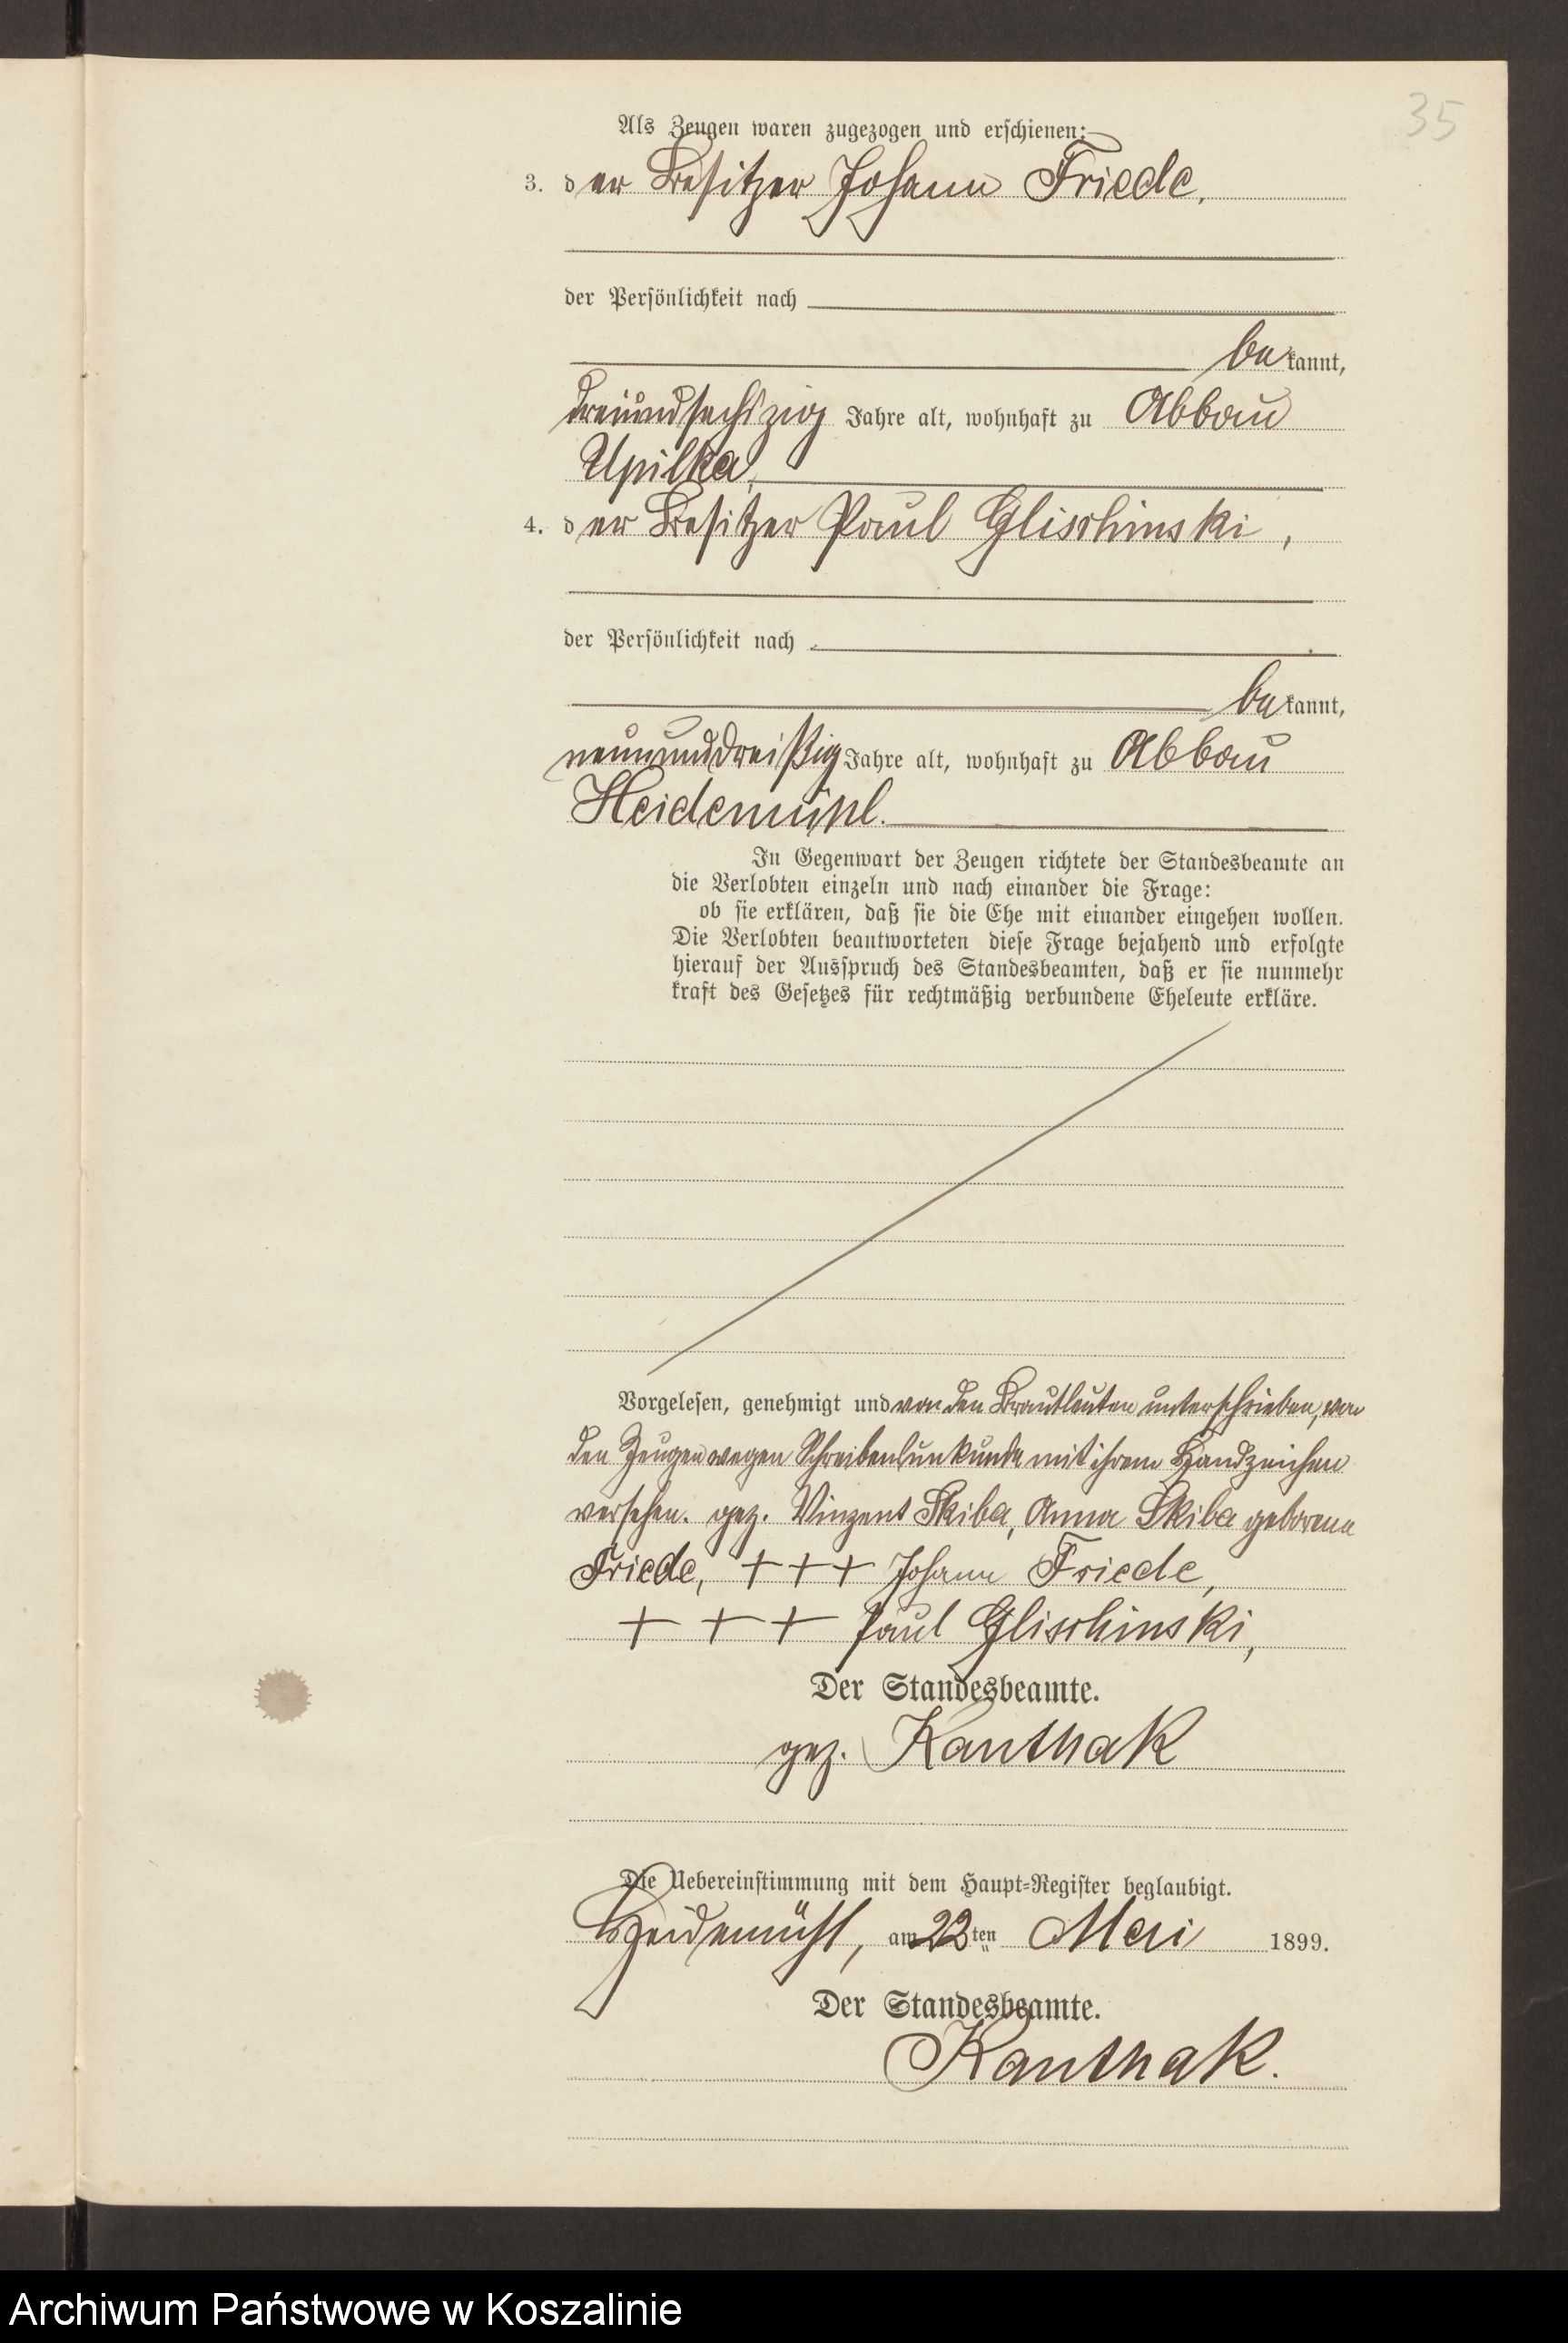 35
Als Zeugen waren zugezogen und erschienen:
3. der Besitzer Johann Friede,
der Persönlichkeit nach
bekannt,
dreiundsechszig Jahre alt, wohnhaft zu Abbau
Upilka,
4. der Besitzer Paul Glischinski,
der Persönlichkeit nach
bekannt,
neununddreißig Jahre alt, wohnhaft zu Abbau
Heidemühl.
In Gegenwart der Zeugen richtete der Standesbeamte an
die Verlobten einzeln und nach einander die Frage:
ob sie erklären, daß sie die Ehe mit einander eingehen wollen.
Die Verlobten beantworteten diese Frage bejahend und erfolgte
hierauf der Ausspruch des Standesbeamten, daß er sie nunmehr
kraft des Gesetzes für rechtmäßig verbundene Eheleute erkläre.
Vorgelesen, genehmigt und von den Brautleuten unterschrieben, von
den Zeugen wegen Schreibensunkunde mit ihrem Handzeichen
versehen. gez. Vinzent Skiba, Anna Skiba geborene
Friede, +++ Johann Friede,
+ + + Paul Glischinski,
Der Standesbeamte.
gez. Kanthak
Die Uebereinstimmung mit dem Haupt-Register beglaubigt.
Heidemühl, am 22ten Mai 1899.
Der Standesbeamte.
Kanthak.
Archiwum Państwowe w Koszalinie